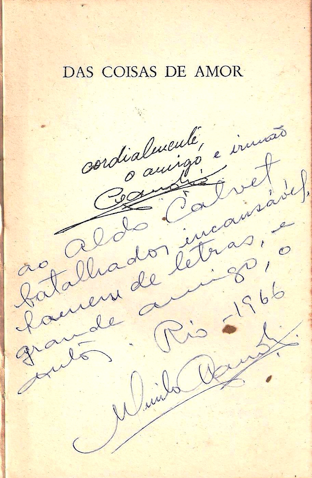 DAS COISAS DE AMOR
cordialmente,
o amigo e irmão
ao Aldo Calvet
batalhador incansável,
homem de letras, e
grande amigo, o
Rio - 1966